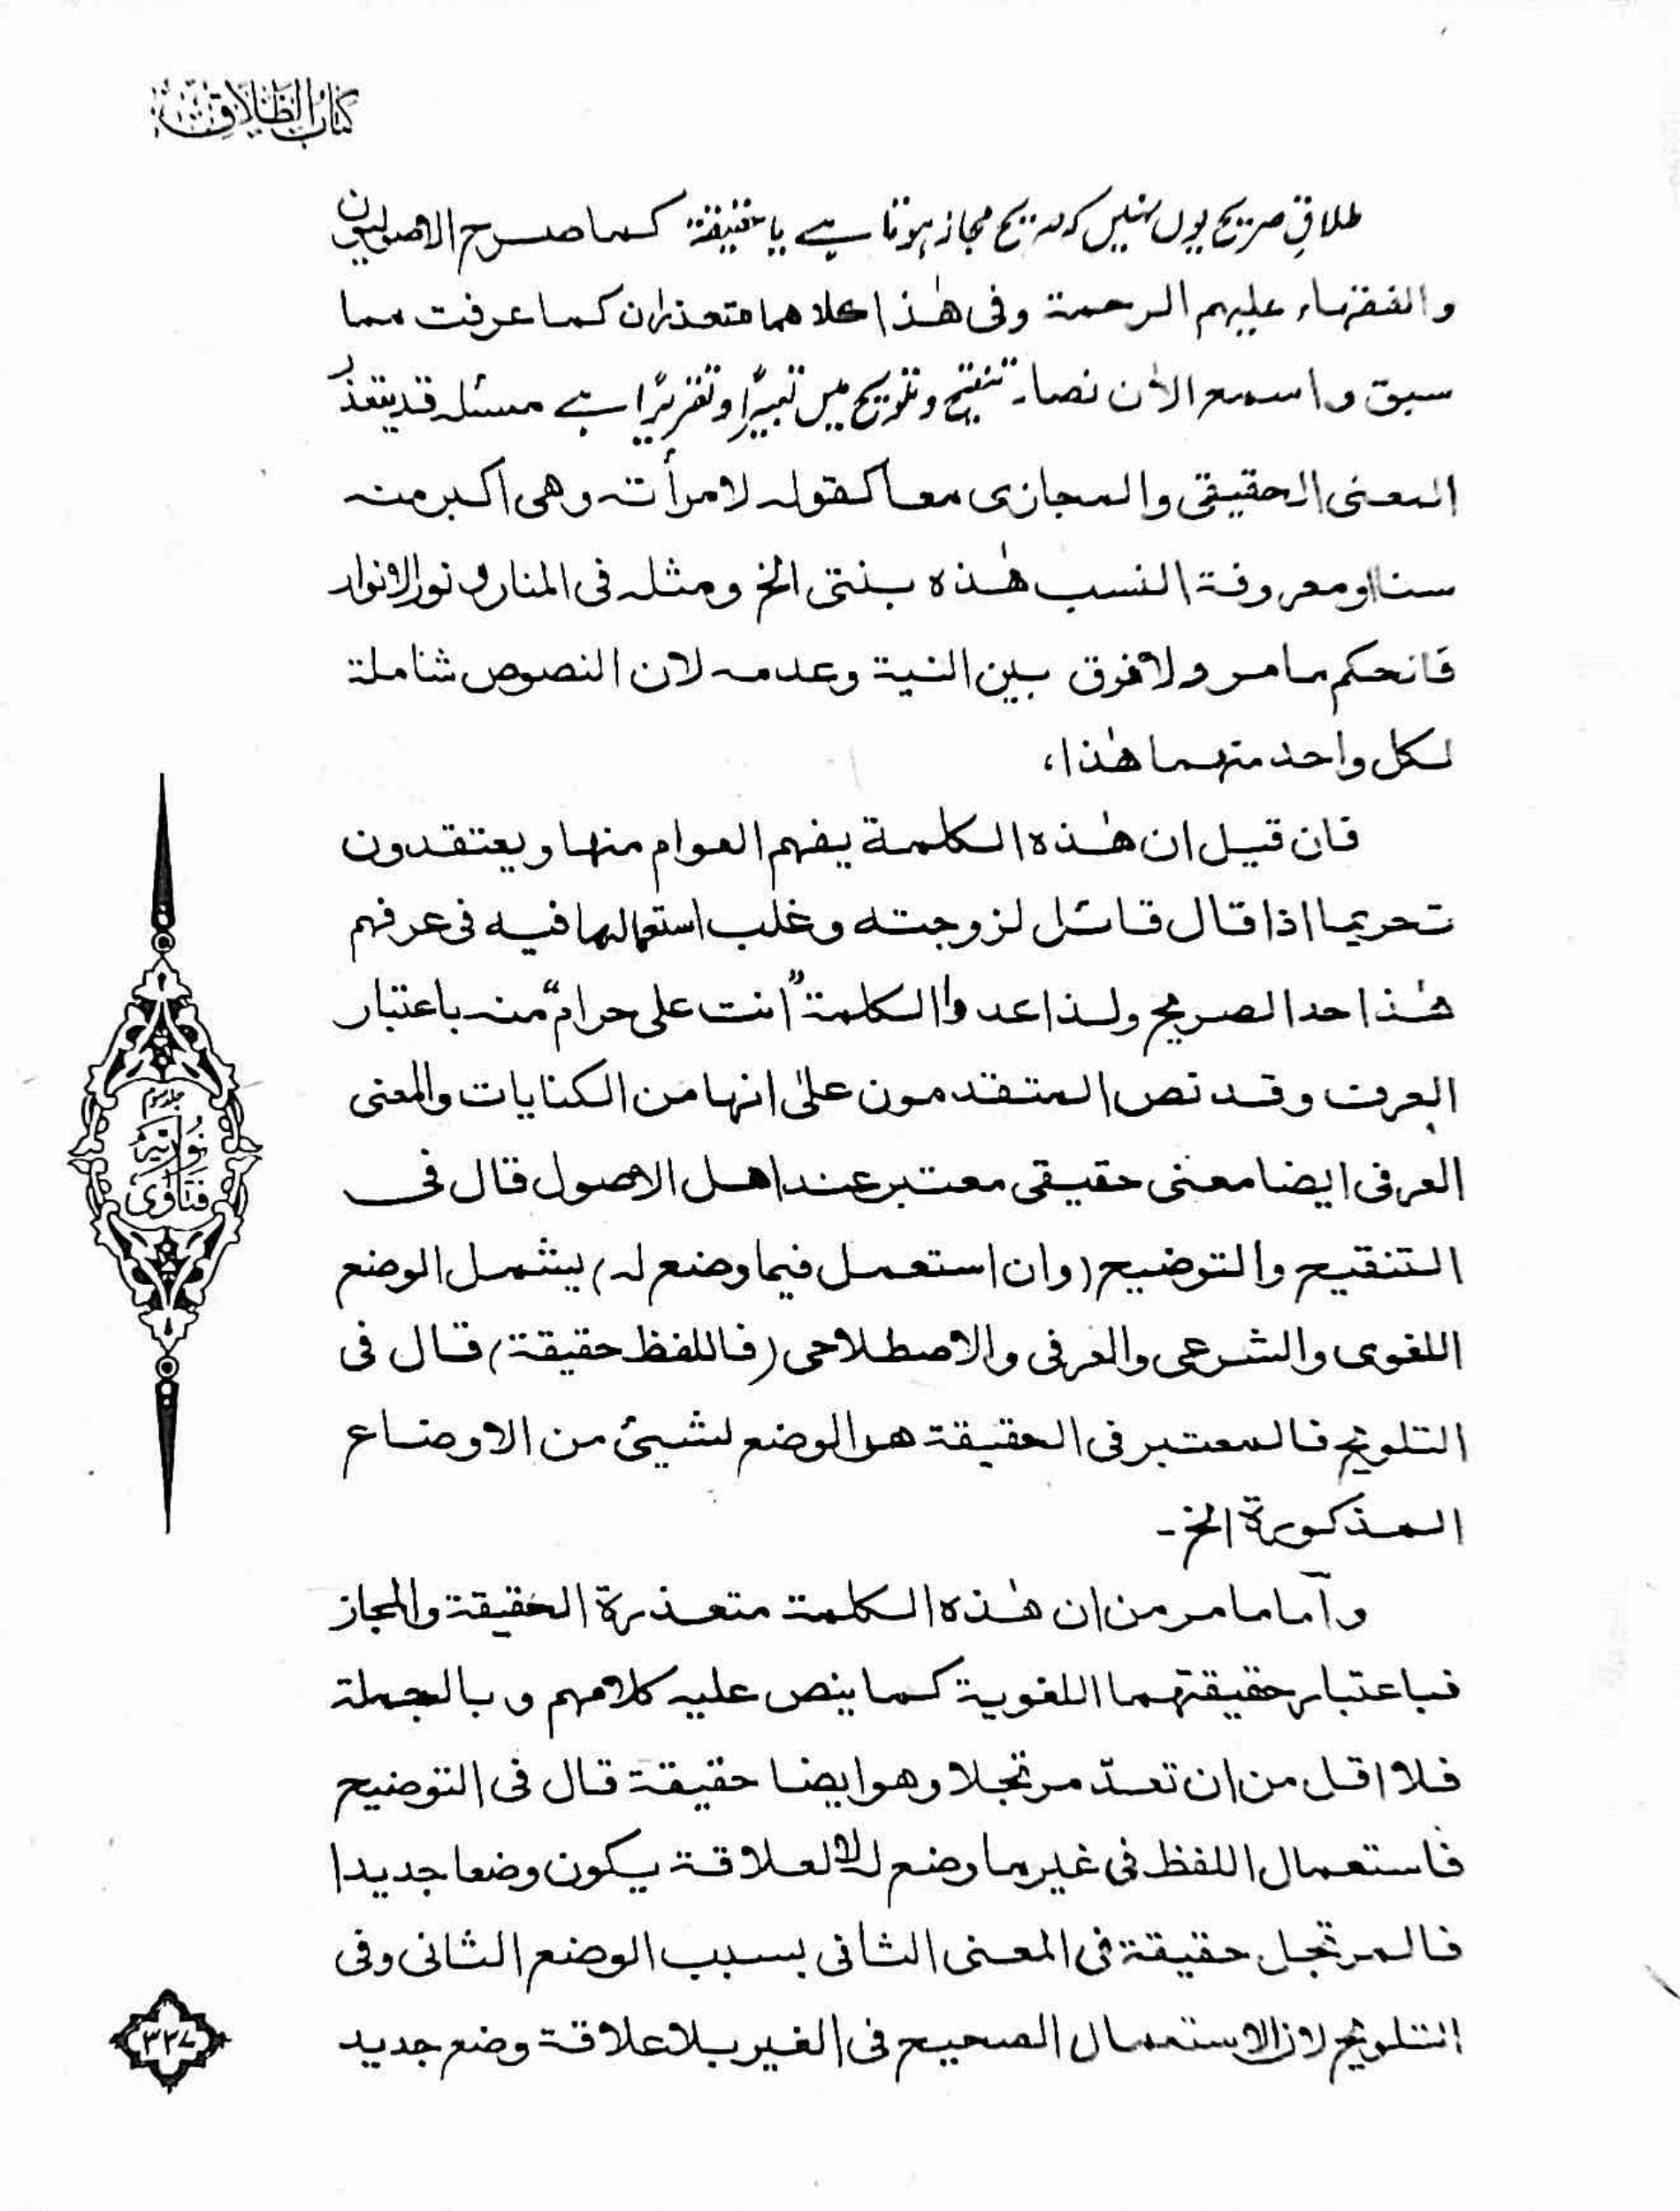 كتاب الطلاق
طلاقِ صریح یوں نہیں کہ صریح مجاز ہوتا ہے یا حقیقۃ کما صرح الاصولیون
والفقہاء علیہم الرحمۃ وفی ھٰذا کلاھما متعذران کما عرفت مما
سبق واسمع الاٰن نصا۔ تنقیح وتلویح میں تعبیرًا وتقریرًا ہے مسئلہ قد یتعذر
المعنی الحقیقی والمجازی معا کقولہ لامرأتہ وھی اکبر منہ
سنا او معروفۃ النسب ھٰذہ بنتی الخ ومثلہ فی المنار و نور الانوار
فالحکم ما مر ولا فرق بین النیۃ وعدمہ لان النصوص شاملۃ
لکل واحد منہما ھٰذا،
فان قیل ان ھٰذہ الکلمۃ یفہم العوام منہا ویعتقدون
تحریما اذا قال قائل لزوجتہ وغلب استعمالہا فیہ فی عرفہم
ھٰذا حد الصریح ولذا عدوا الکلمۃ "انت علی حرام" منہ باعتبار
العرف وقد نص المتقدمون علیٰ انہا من الکنایات والمعنی
العرفی ایضا معنی حقیقی معتبر عند اھل الاصول قال فی
التنقیح والتوضیح (وان استعمل فیما وضع لہ) یشمل الوضع
اللغوی والشرعی والعرفی والاصطلاحی (فاللفظ حقیقۃ) قال فی
التلویح فالمعتبر فی الحقیقۃ ھو الوضع لشیئ من الاوضاع
المذکورۃ الخ۔
وآما ما مر من ان ھٰذہ الکلمۃ متعذرۃ الحقیقۃ والمجاز
فباعتبار حقیقتہما اللغویۃ کما ینص علیہ کلامہم و بالجملۃ
فلا اقل من ان تعدّ مرتجلا وھو ایضا حقیقۃ قال فی التوضیح
فاستعمال اللفظ فی غیر ما وضع لہ لا لعلاقۃ یکون وضعا جدیدا
فالمرتجل حقیقۃ فی المعنی الثانی بسبب الوضع الثانی وفی
التلویح لان الاستعمال الصحیح فی الغیر بلا علاقۃ وضع جدید
جلد سوم
نوریہ
فتاویٰ
۳۲۷